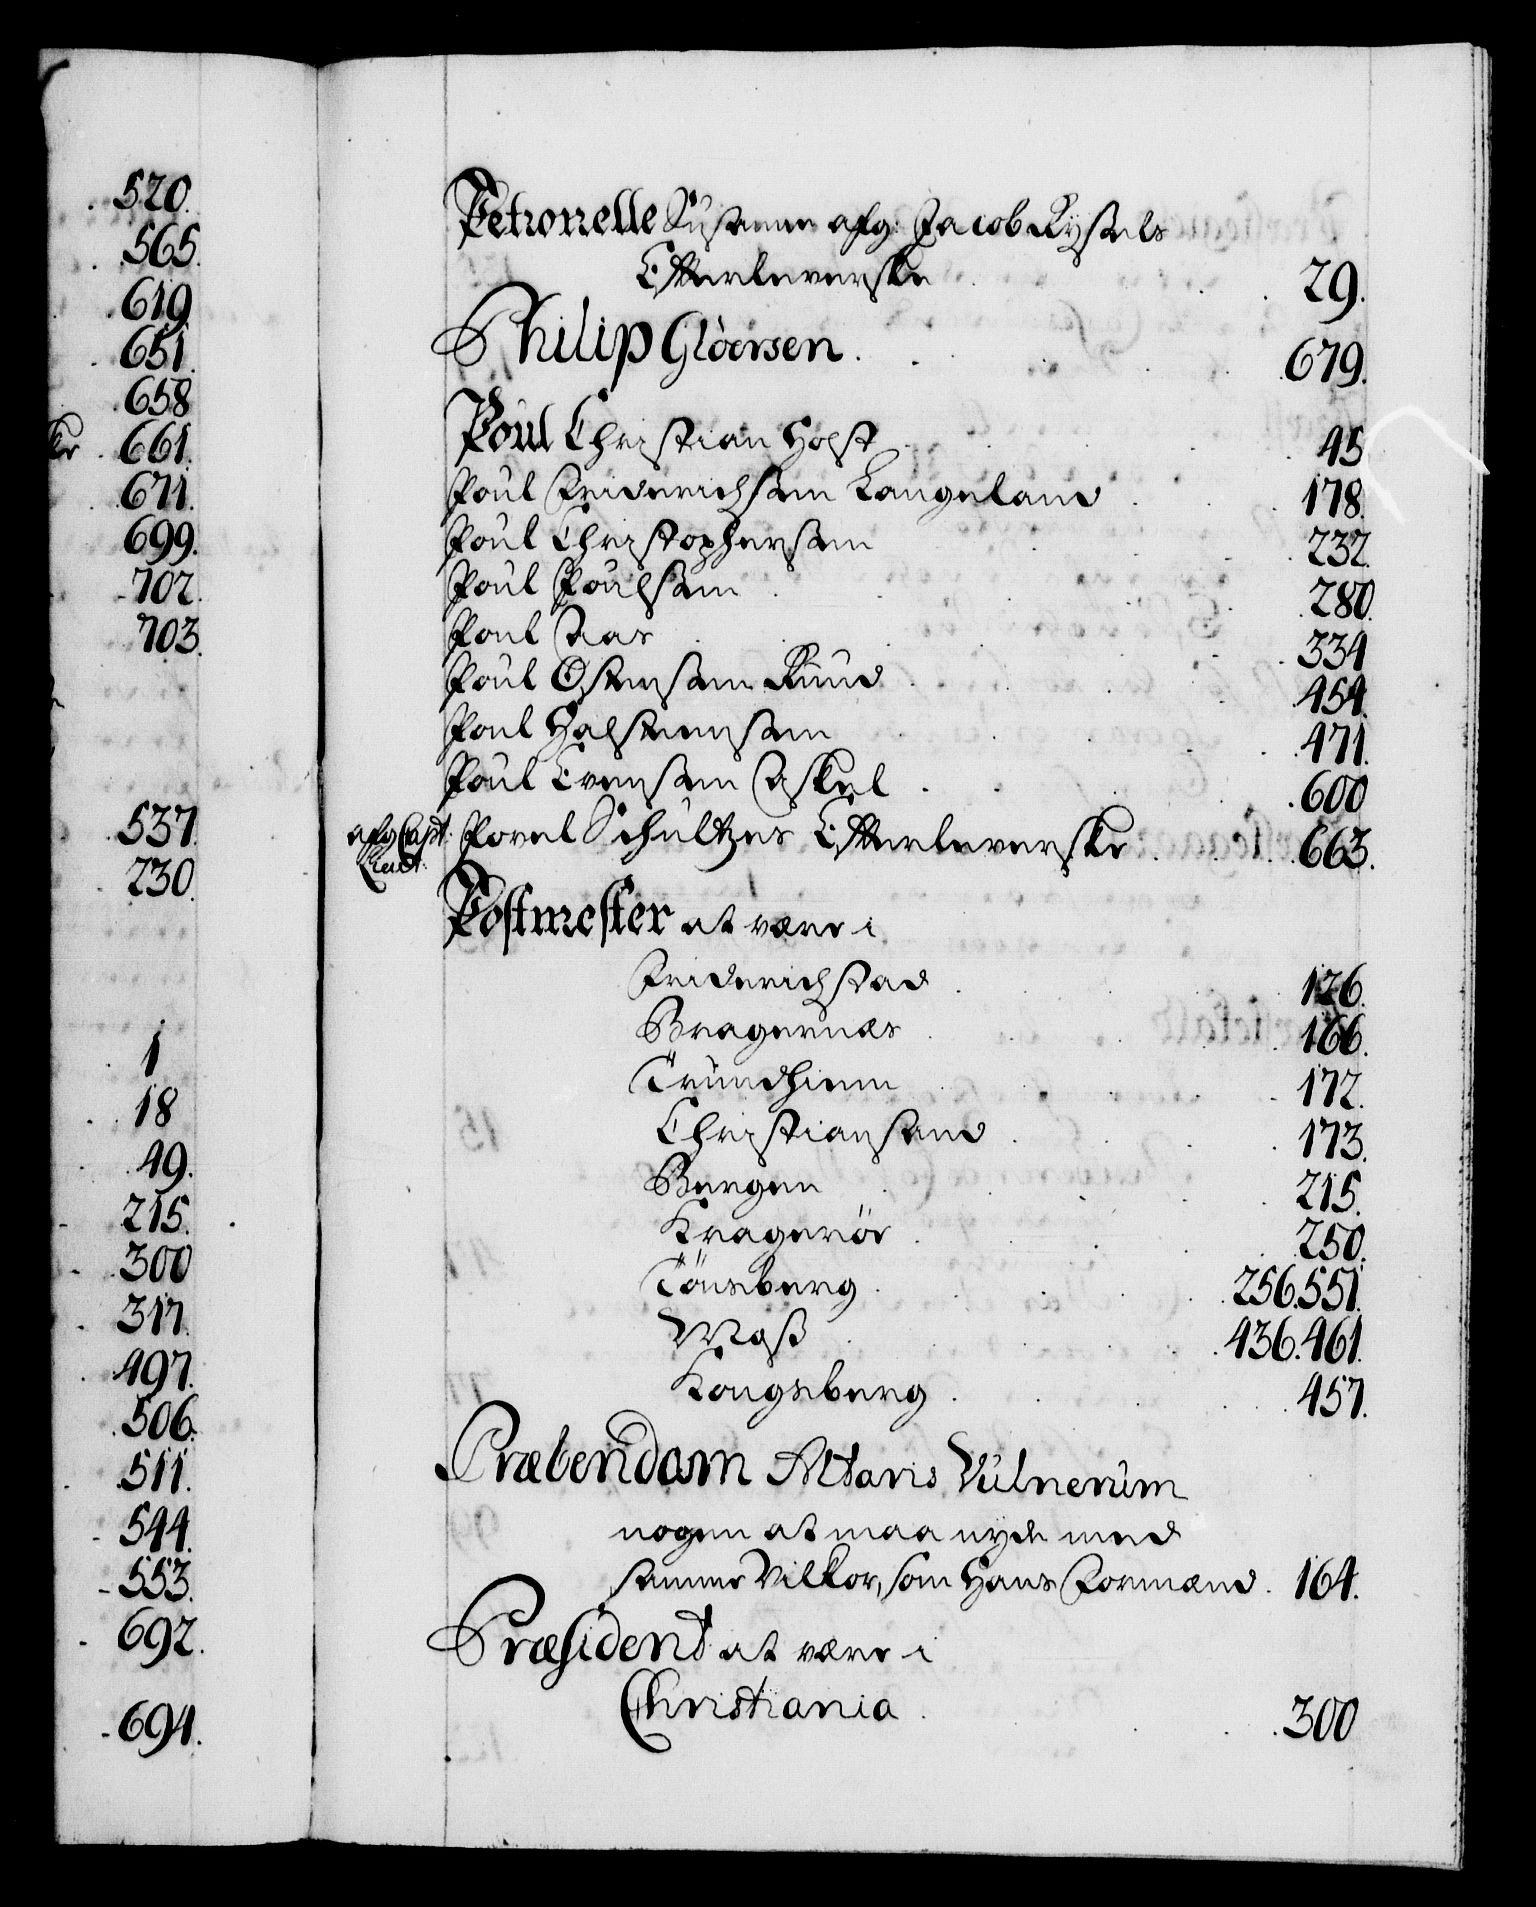 520.
565.
619
651.
658
661.
671.
699.
702.
703.
537.
230.
1
18
49.
215.
300
317.
497.
506.
511.
544.
553.
692.
694.
Petronelle Susanna afg: Jacob Rysels
Efterleverske 29.
Philip Glöersen. 679.
Poul Christian Holst 45
Poul Friderichsen Langeland 178.
Poul Christophersen 232.
Poul Poulsen 280.
Poul Aas 334
Poul Ostensen Ruud 454.
Poul Halstensen 471.
Poul Evensen Askel 600
afg Capt: Povel Schultzes Efterleverske 663.
Postmester at være i
Friderichstad 126.
Bragernæs 166.
Trundhiem 172.
Christiansand 173.
Bergen 215.
Kragerör 250.
Tönsberg 256.551.
Moss 436.461.
Kongsberg 457.
Præbendam Altaris Vulnerum
nogen at maa nyde med
samme Vilkor, som Hans Formænd. 164.
Præsident at være i
Christiania 300